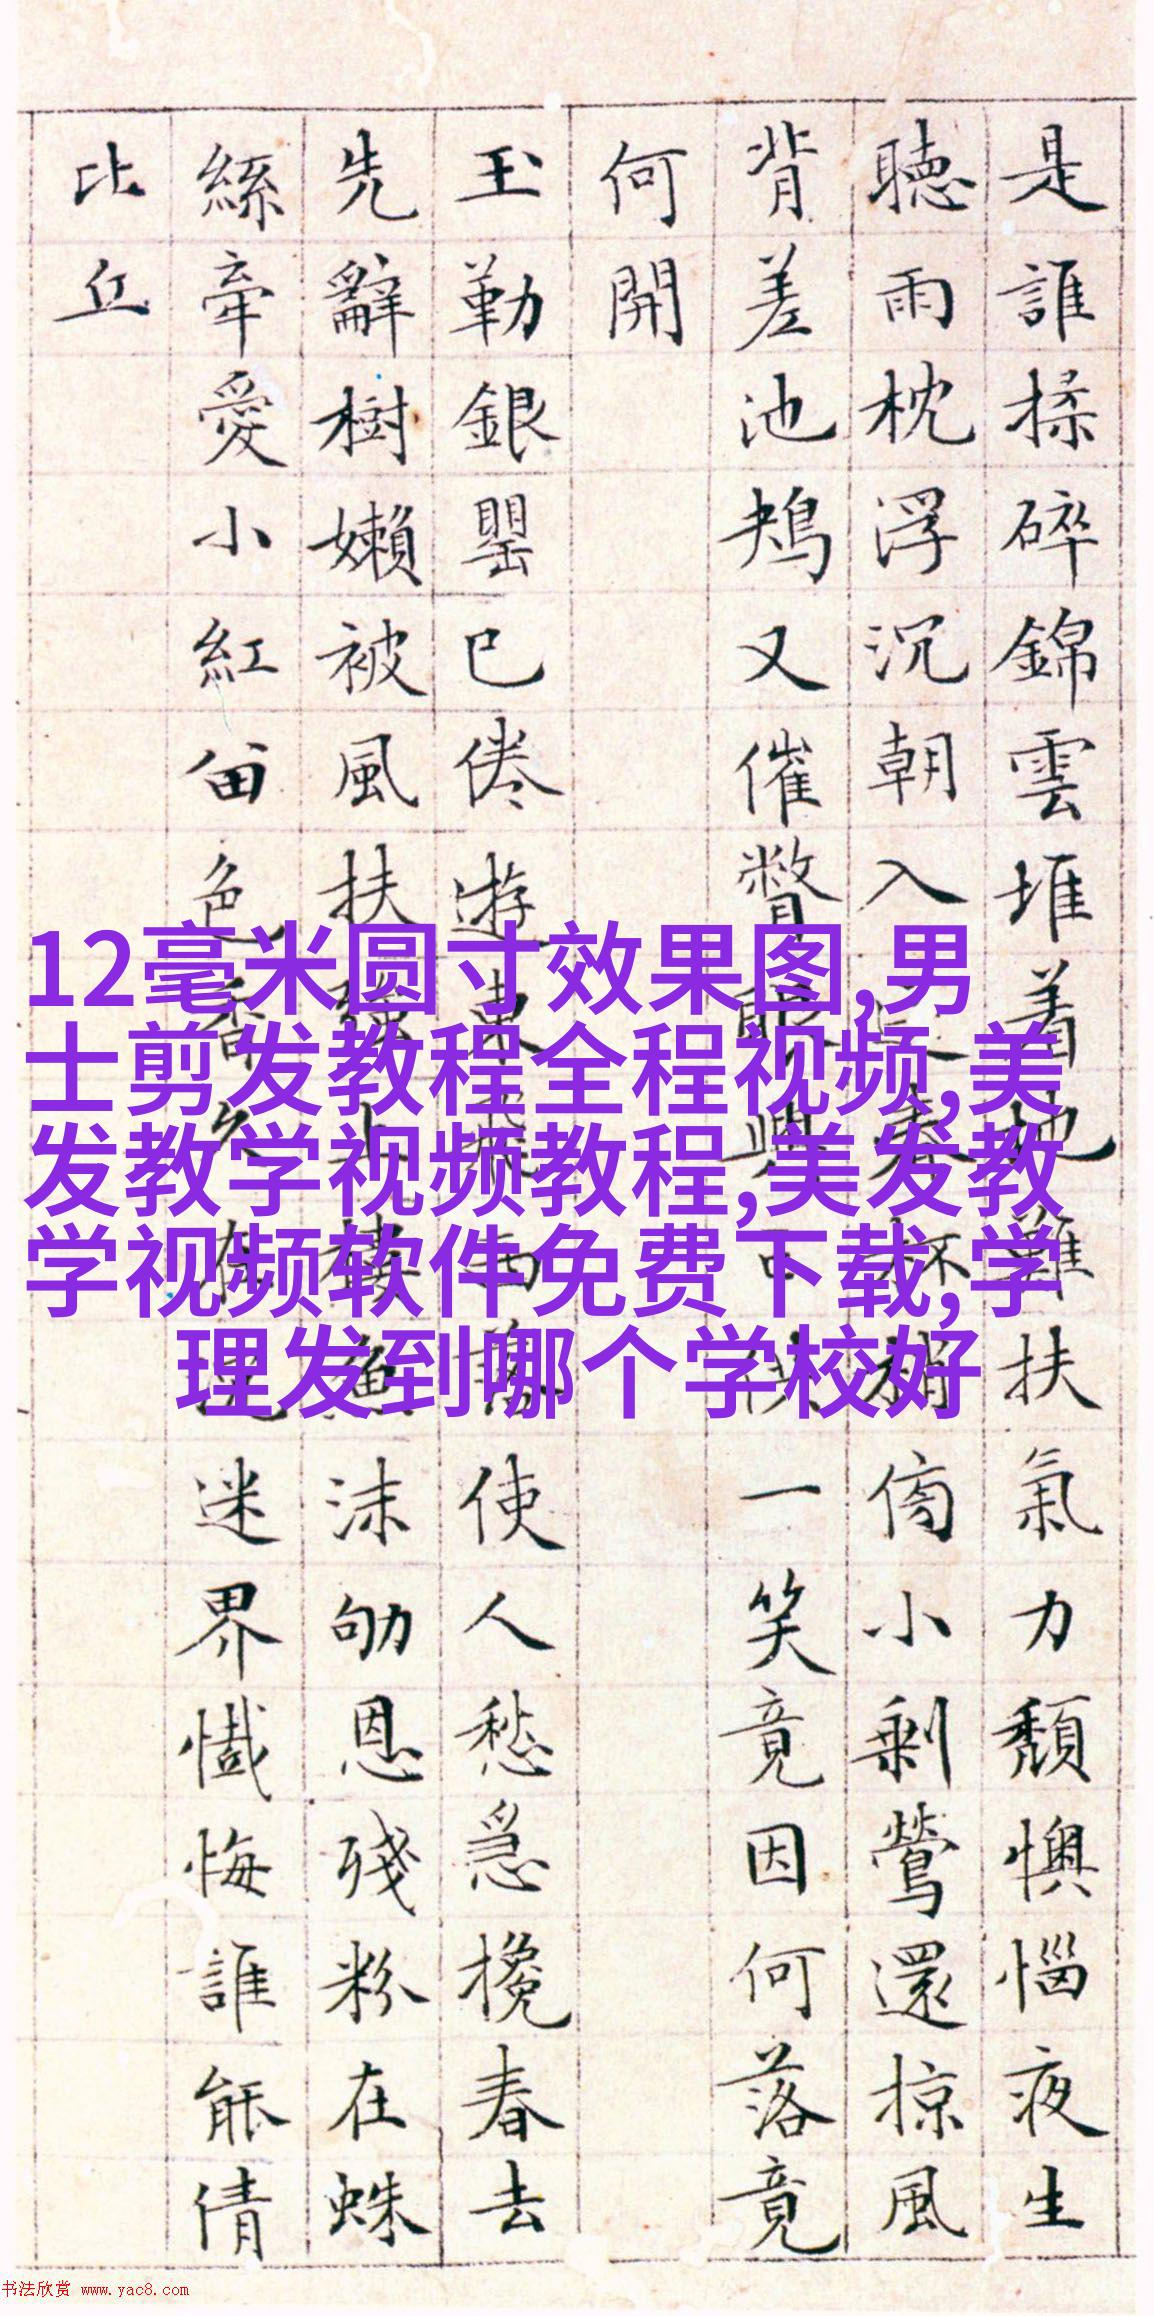 是誰揉碎錦雲堆着地難扶氣力頹懊惱夜生
聽雨枕浮沉朝入杯小剩鶯還掠風
背差池鵊又催瞥眼興一笑竟因何落竟
何開
玉勒銀罌已倦遊東飛西落使人愁急攙春去
先辭樹嬾被風扶強上樓魚沫劬恩殘粉在蛛
絲牽愛小紅留色香迷界懺悔誰能倩
比丘
12毫米圆寸效果图,男
士剪发教程全程视频,美
发教学视频教程,美发教
学视频软件免费下载,学
理发到哪个学校好
书法欣赏 www.yac8.com